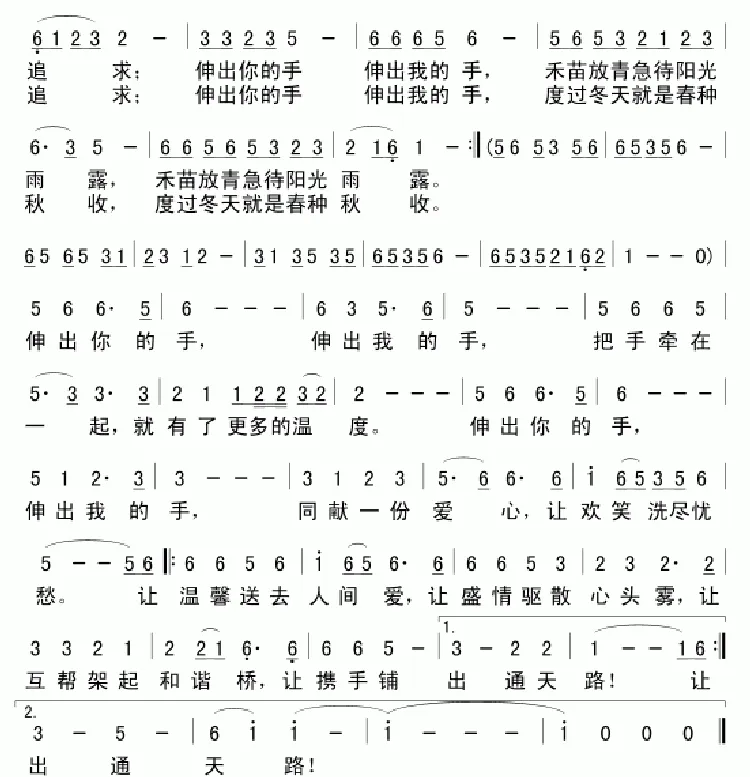 6 1 2 3 2 － | 3 3 2 3 5 － | 6 6 6 5 6 － | 5 6 5 3 2 1 2 3 |
追 求； 伸出你的手 伸出我的 手， 禾苗放青急待阳光
追 求； 伸出你的手 伸出我的 手， 度过冬天就是春种
6· 3 5 － | 6 6 5 6 5 3 2 3 | 2 1 6 1 － :‖ (5 6 5 3 5 6 | 6 5 3 5 6 － |
雨 露， 禾苗放青急待阳光 雨 露。
秋 收， 度过冬天就是春种 秋 收。
6 5 6 5 3 1 | 2 3 1 2 － | 3 1 3 5 3 5 | 6 5 3 5 6 － | 6 5 3 5 2 1 6 2 | 1 － － 0 ) |
5 6 6· 5 | 6 － － － | 6 3 5· 6 | 5 － － － | 5 6 6 5 |
伸 出 你 的 手， 伸 出 我 的 手， 把 手 牵 在
5· 3 3· 3 | 2 1 1 2 2 3 2 | 2 － － － | 5 6 6· 5 | 6 － － － |
一 起，就 有 了 更多的温 度。 伸 出 你 的 手，
5 1 2· 3 | 3 － － － | 3 1 2 3 | 5· 6 6· 6 | i 6 5 3 5 6 |
伸 出 我 的 手， 同 献 一 份 爱 心，让 欢 笑 洗尽忧
5 － － 5 6 ‖: 6 6 5 6 | i 6 5 6· 6 | 6 6 5 3 | 2 3 2· 2 |
愁。 让 温 馨 送 去 人 间 爱，让 盛 情 驱 散 心 头 雾，让
1.
3 3 2 1 | 2 2 1 6· 6 | 6 6 5 － | 3 － 2 2 | 1 － － 1 6 :‖
互 帮 架 起 和 谐 桥，让 携 手 铺 出 通 天 路！ 让
2.
3 － 5 － | 6 i i － | i － － － | i 0 0 0 ‖
出 通 天 路！